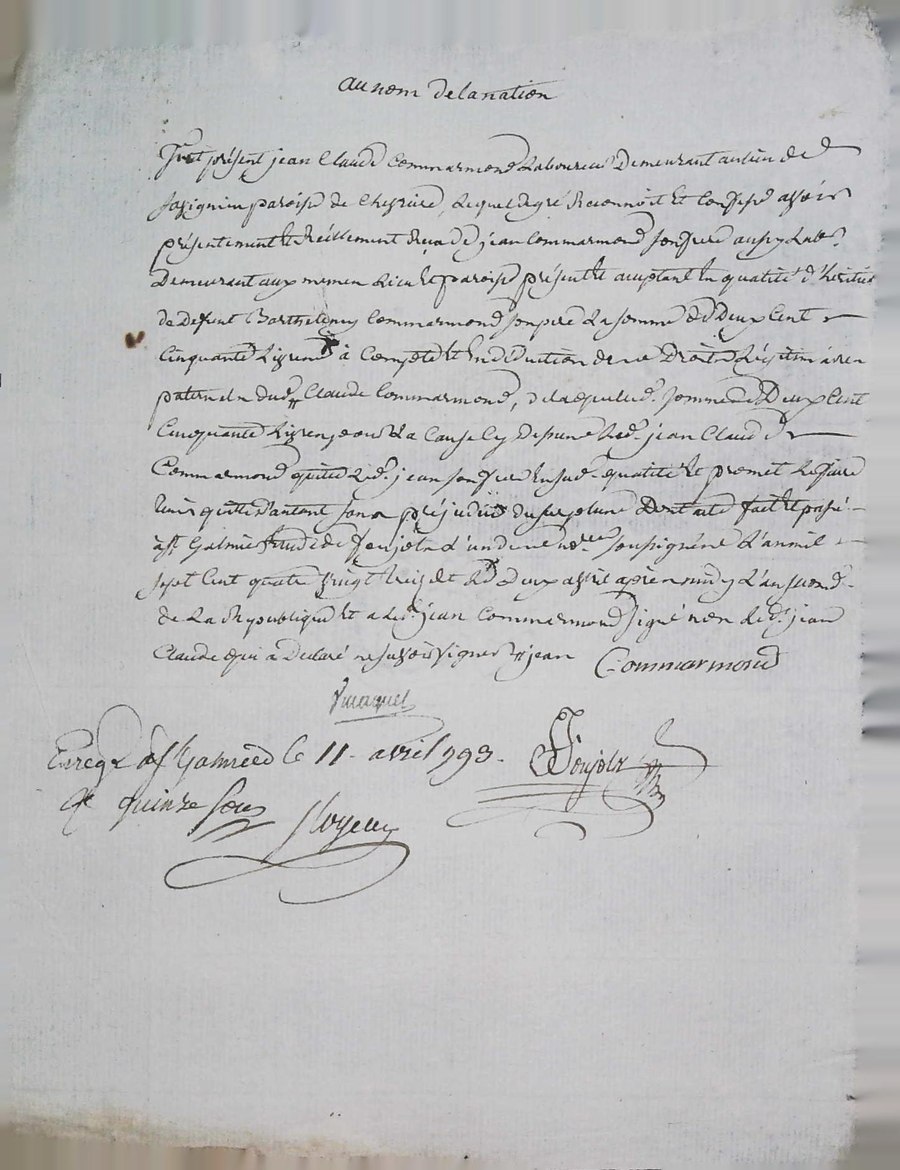 au nom de la nation
fut présent jean Claude Commarmond Laboureur Demeurant au lieu de
paroisse de Chevrière, Lequel de gré Reconnoit Et Confesse avoir
présentement Et Réellement Reçu de jean Commarmond son frere aussy Lab.r
Demeurant aux memes Lieu Et paroisse présent Et acceptant En qualité d'héritier
de Defunt Barthelemy Commarmond son père La somme de Deux Cent
Cinquante Livres à Compte Et En Déduction de ses Droits Légitimaires
paternels dud. Claude Commarmond, de laquelle d. somme de Deux Cent
Cinquante Livres pour La Cause Cy Dessus Led. jean Claude
Commarmond quitte Led. jean son frere En sud. qualité Et promet Le faire
tenir quitte D'autant sans préjudice du surplus Dont acte fait Et passé
à St Galmier Etude de Ponjols L'un des no.res soussignés L'an mil
sept Cent quatre vingt treize Et Le Deux avril après midy L'an second
de La République Et a led. jean Commarmond signé non led. jean
Claude qui a Declaré ne savoir signer jean Commarmond
Enregr. à St Galmier le 11 avril 793.
R. quinze sous